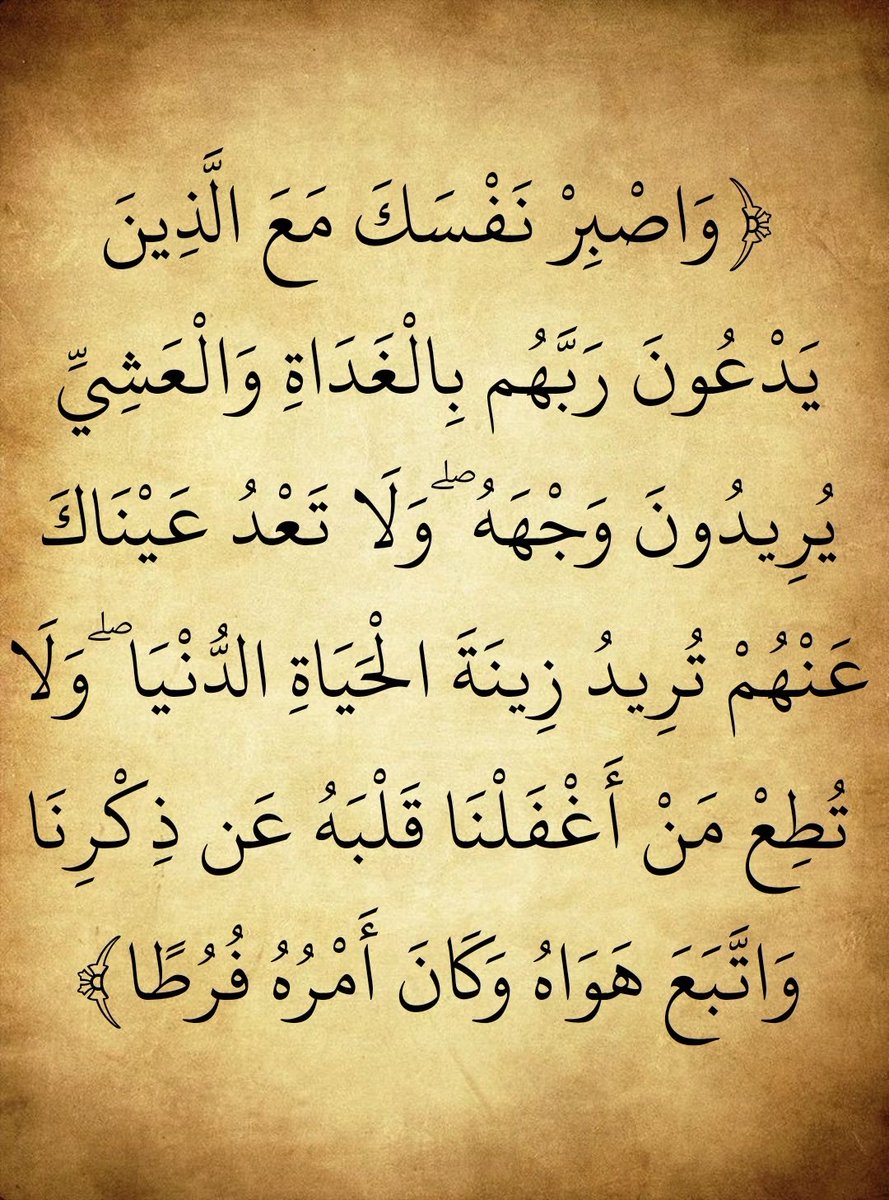 ﴿ وَاصْبِرْ نَفْسَكَ مَعَ الَّذِينَ
يَدْعُونَ رَبَّهُم بِالْغَدَاةِ وَالْعَشِيِّ
يُرِيدُونَ وَجْهَهُ ۖ وَلَا تَعْدُ عَيْنَاكَ
عَنْهُمْ تُرِيدُ زِينَةَ الْحَيَاةِ الدُّنْيَا ۖ وَلَا
تُطِعْ مَنْ أَغْفَلْنَا قَلْبَهُ عَن ذِكْرِنَا
وَاتَّبَعَ هَوَاهُ وَكَانَ أَمْرُهُ فُرُطًا ﴾